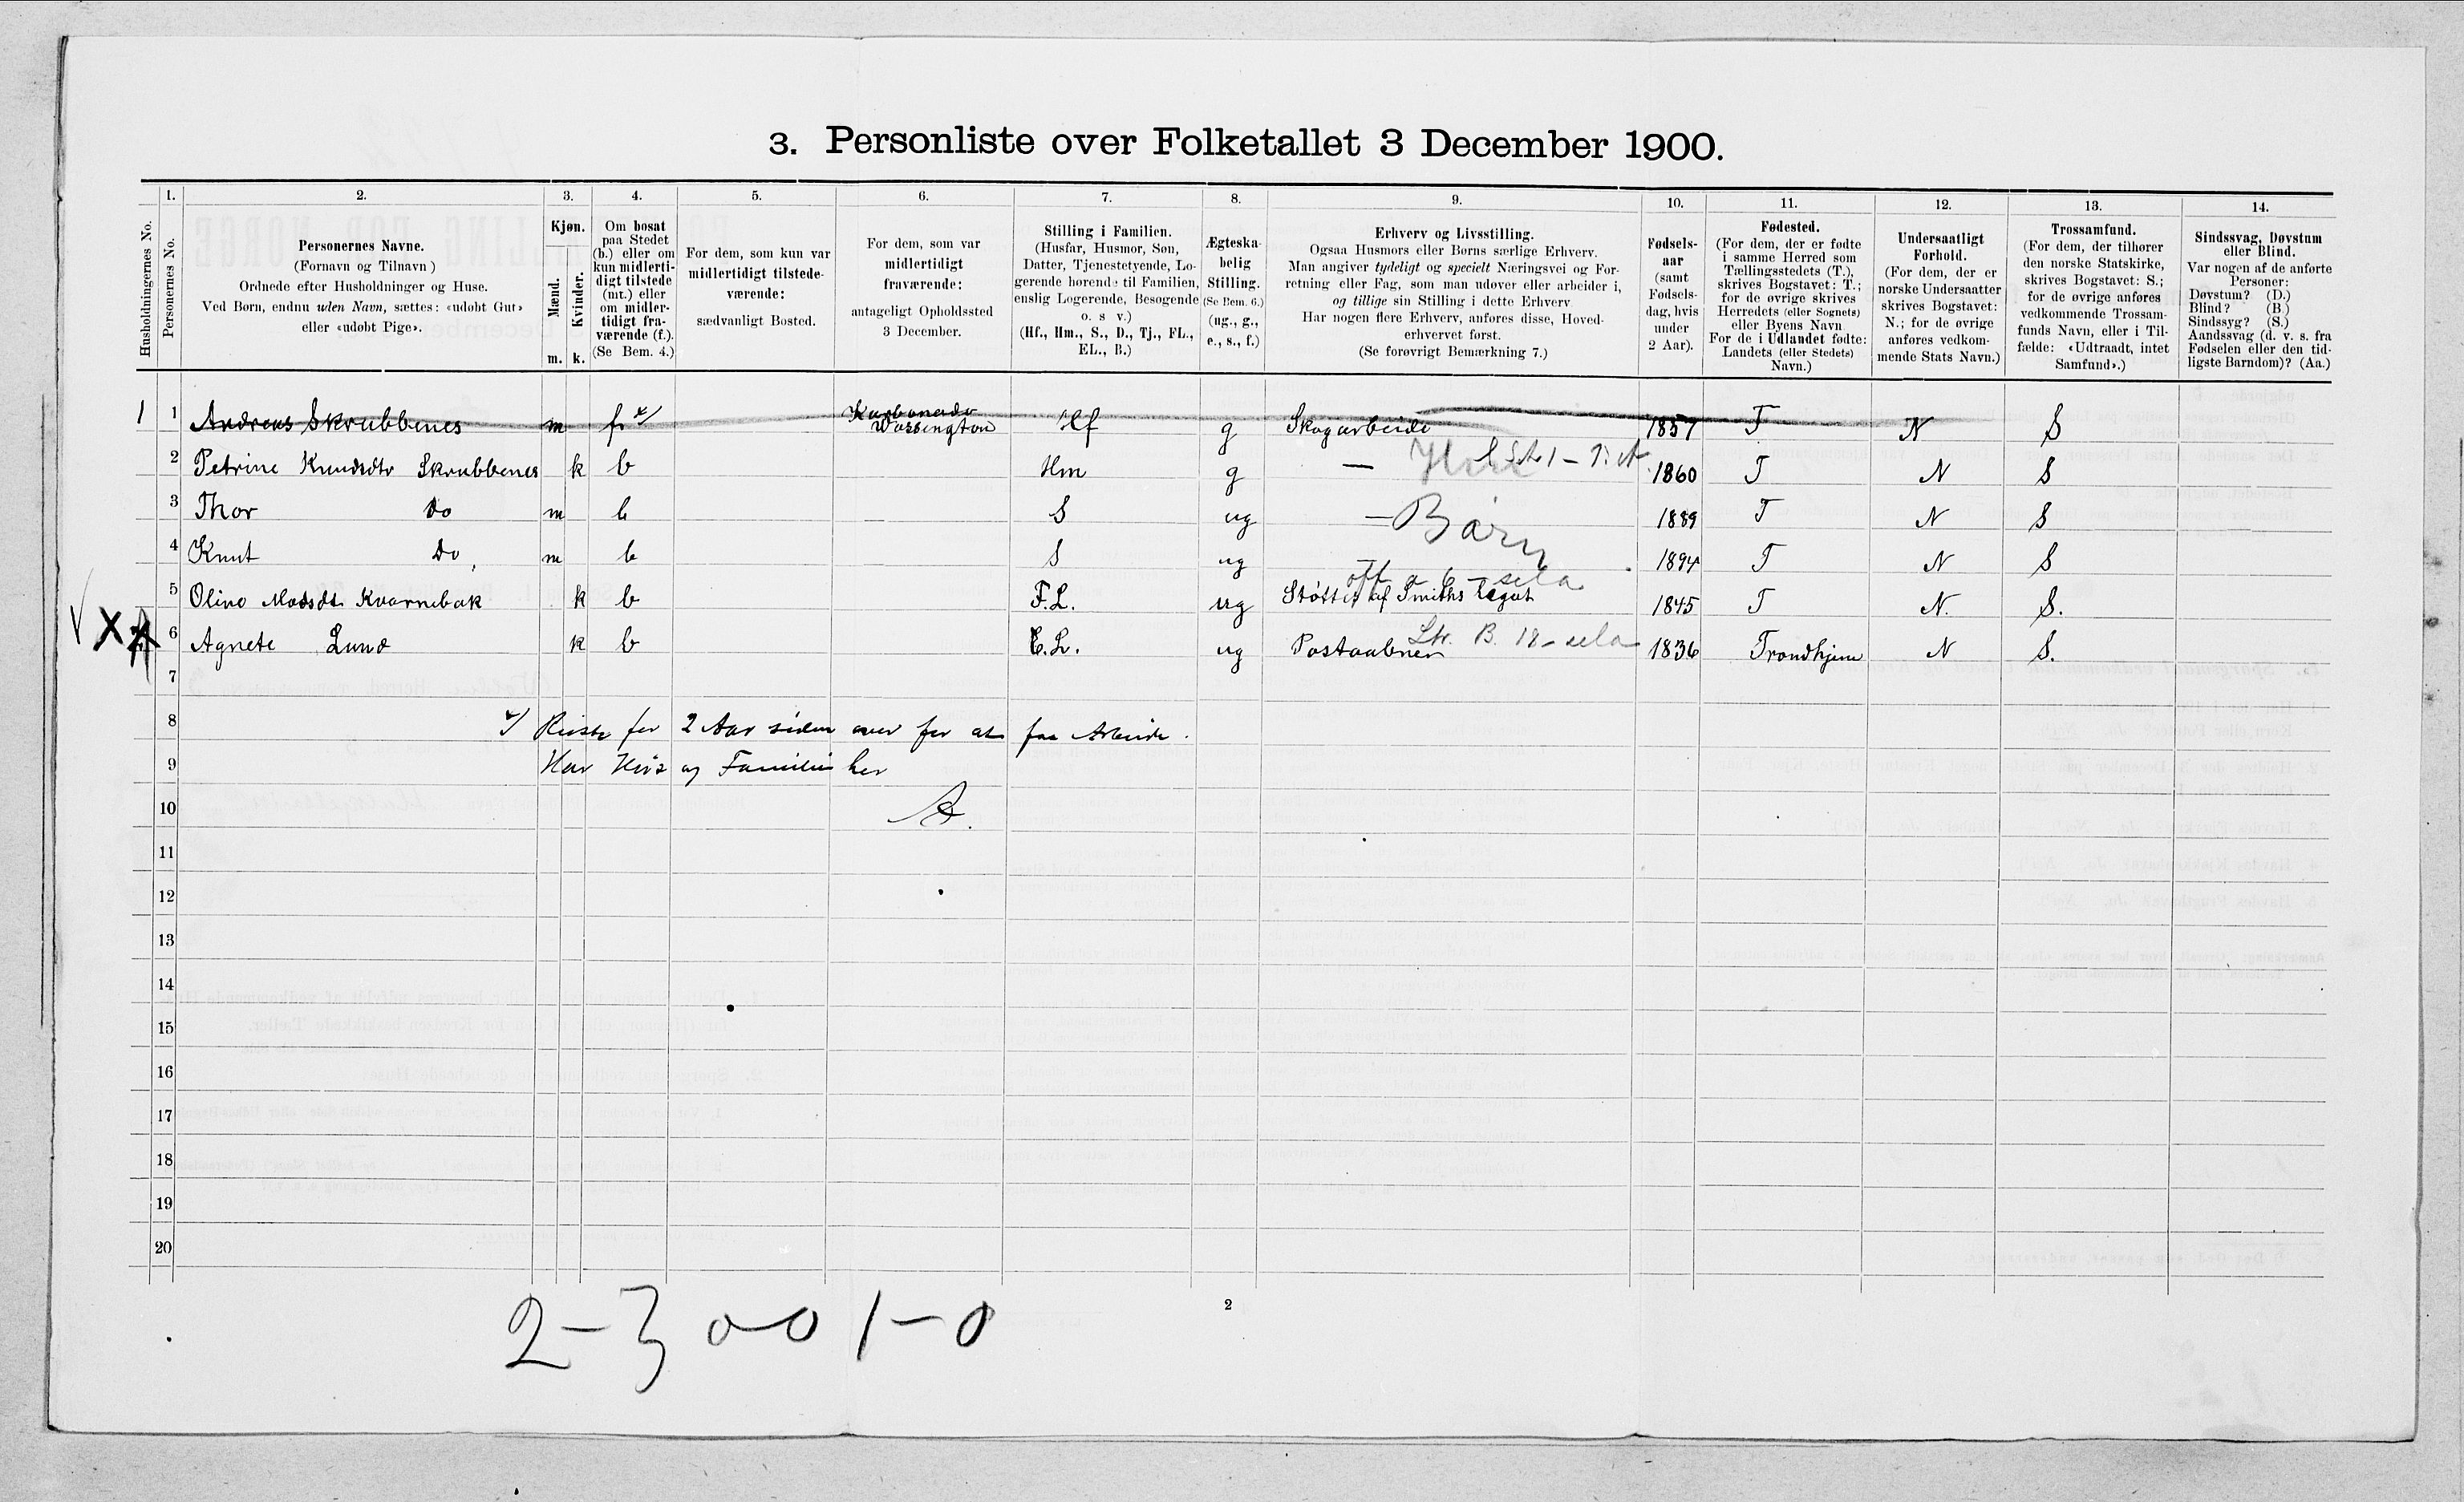 3. Personliste over Folketallet 3 December 1900.
1. 2. 3. 4. 5. 6. 7. 8. 9. 10. 11. 12. 13. 14.
Husholdningernes No.
Personernes No.
Personernes Navne.
(Fornavn og Tilnavn)
Ordnede efter Husholdninger og Huse.
Ved Børn, endnu uden Navn, sættes: «udøbt Gut»
eller «udøbt Pige».
Kjøn.
Mænd.
Kvinder.
m. k.
Om bosat
paa Stedet
(b.) eller om
kun midlerti-
digt tilstede
(mt.) eller
om midler-
tidigt fra-
værende (f.).
(Se Bem. 4.)
For dem, som kun var
midlertidigt tilstede-
værende:
sædvanligt Bosted.
For dem, som var
midlertidigt
fraværende:
antageligt Opholdssted
3 December.
Stilling i Familien.
(Husfar, Husmor, Søn,
Datter, Tjenestetyende, Lo-
gerende hørende til Familien,
enslig Logerende, Besøgende
o. s v.)
(Hf., Hm., S., D., Tj., FL.,
EL., B.)
Ægteska-
belig
Stilling.
(Se Bem. 6.)
(ug., g.,
e., s., f.)
Erhverv og Livsstilling.
Ogsaa Husmors eller Børns særlige Erhverv.
Man angiver tydeligt og specielt Næringsvei og For-
retning eller Fag, som man udøver eller arbeider i,
og tillige sin Stilling i dette Erhverv.
Har nogen flere Erhverv, anføres disse, Hoved-
erhvervet først.
(Se forøvrigt Bemærkning 7.)
Fødsels-
aar
(samt
Fødsels-
dag, hvis
under
2 Aar).
Fødested.
(For dem, der er fødte
i samme Herred som
Tællingsstedets (T.),
skrives Bogstavet: T.;
for de øvrige skrives
Herredets (eller Sognets)
eller Byens Navn
For de i Udlandet fødte:
Landets (eller Stedets)
Navn.)
Undersaatligt
Forhold.
(For dem, der er
norske Undersaatter
skrives Bogstavet:
N.; for de øvrige
anføres vedkom-
mende Stats Navn.)
Trossamfund.
(For dem, der tilhører
den norske Statskirke,
skrives Bogstavet: S.;
for de øvrige anføres
vedkommende Trossam-
funds Navn, eller i Til-
fælde: «Udtraadt, intet
Samfund».)
Sindssvag, Døvstum
eller Blind.
Var nogen af de anførte
Personer:
Døvstum? (D.)
Blind? (B.)
Sindssyg? (S.)
Aandssvag (d. v. s. fra
Fødselen eller den tid-
ligste Barndom)? (Aa.)
1 1 Andreas Skrubbenes m f x/ Wassington Hf g Skogarbeide 1857 T N S
2 Petrine Knudsdtr Skrubbenes k b Hm g — 1860 T N S
3 Thor do m b S ug — Børn 1889 T N S
4 Knut do m b S ug 1894 T N S
5 Oline Madsdt. Kvarnebak k b F.L. ug Støttes af Smiths Legat 1845 T N. S.
X 6 Agnete Lund k b E.L. ug Postaabner 1836 Trondhjem N S.
7
8 x/ Reiste for 2 Aar siden over for at faa Arbeide.
9 Har Hus og Familie her
10 A.
11
12
13
14
15
16
17
18
19
20
2
2-3 0-0 1-0